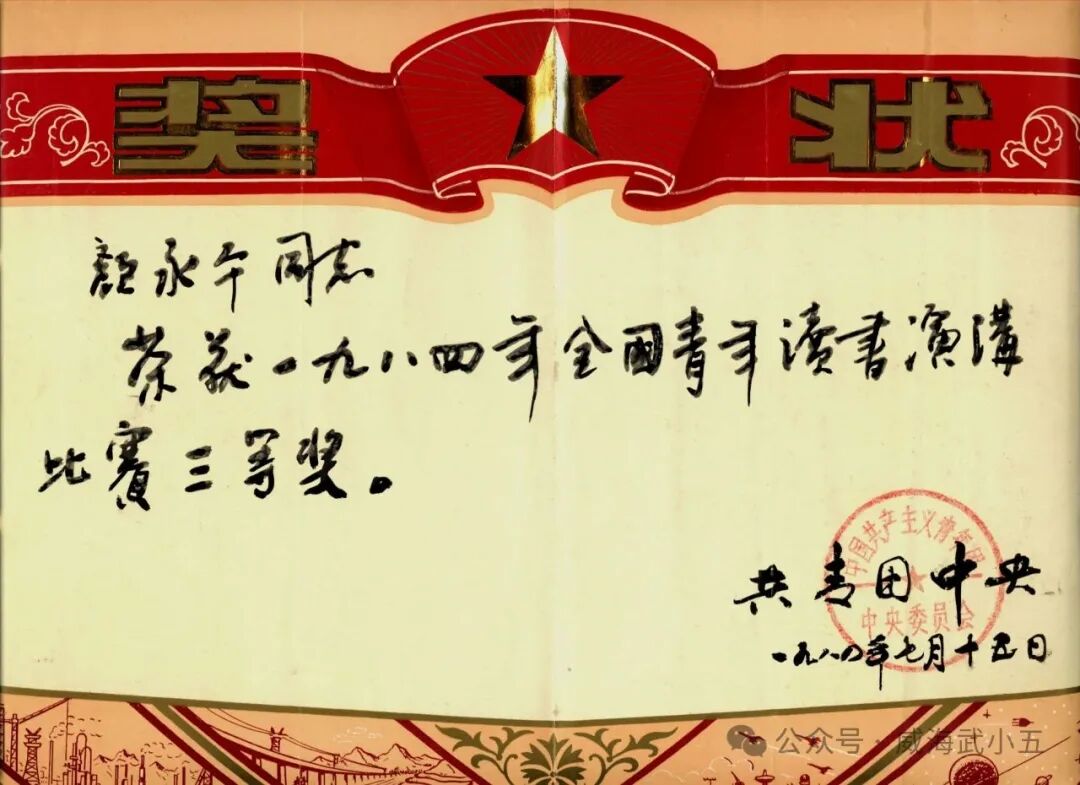 奖状
颜永午同志
荣获一九八四年全國青年讀書演講
比賽三等奖。
中国共产主义青年团
中央委员会
共青团中央
一九八四年七月十五日
公众号·威海武小五